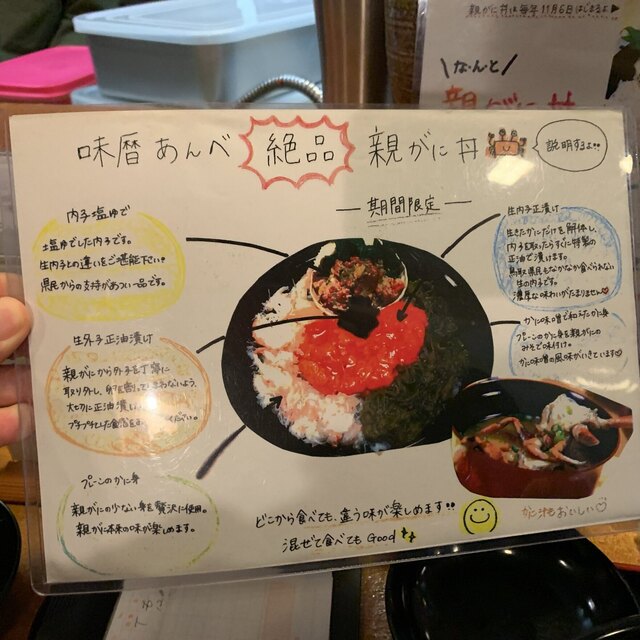 親がに丼は毎年11月6日はじまるよ
\なんと/
親がに丼
味暦あんべ 絶品 親がに丼
説明するよ!!
期間限定
内子塩ゆで
塩ゆでした内子です。
生内子との違いをご堪能下さい!
県民からの支持があつい一品です。
生外子正油漬け
親がにから外子を丁寧に
取り外し、
大切に正油漬け
プチプチとした食感を
プレーンのかに身
親がにの少ない身を贅沢に使用。
親がに本来の味が楽しめます。
生内子正漬け
生きたかにだけを解体し、
内子を取ったらすぐに特製の
正油で漬けます。
鳥取県民もなかなか食べられない
生の内子です。
濃厚な味わいがたまりません♡
かに味噌で和えたかに身
プレーンのかに身を親がにの
みそで味付け。
かに味噌の風味がいきています♡
どこから食べても、違う味が楽しめます!!
混ぜて食べてもGood
かに汁もおいしい♡